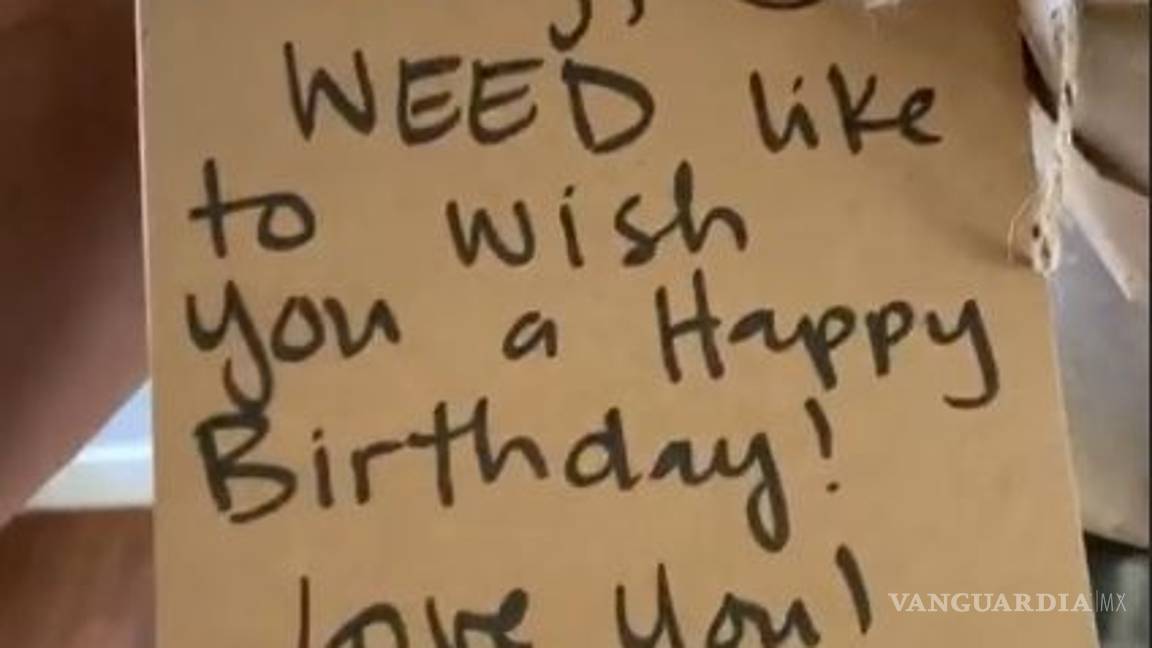 WEED like
to wish
you a Happy
Birthday!
love you!
VANGUARDIA|MX